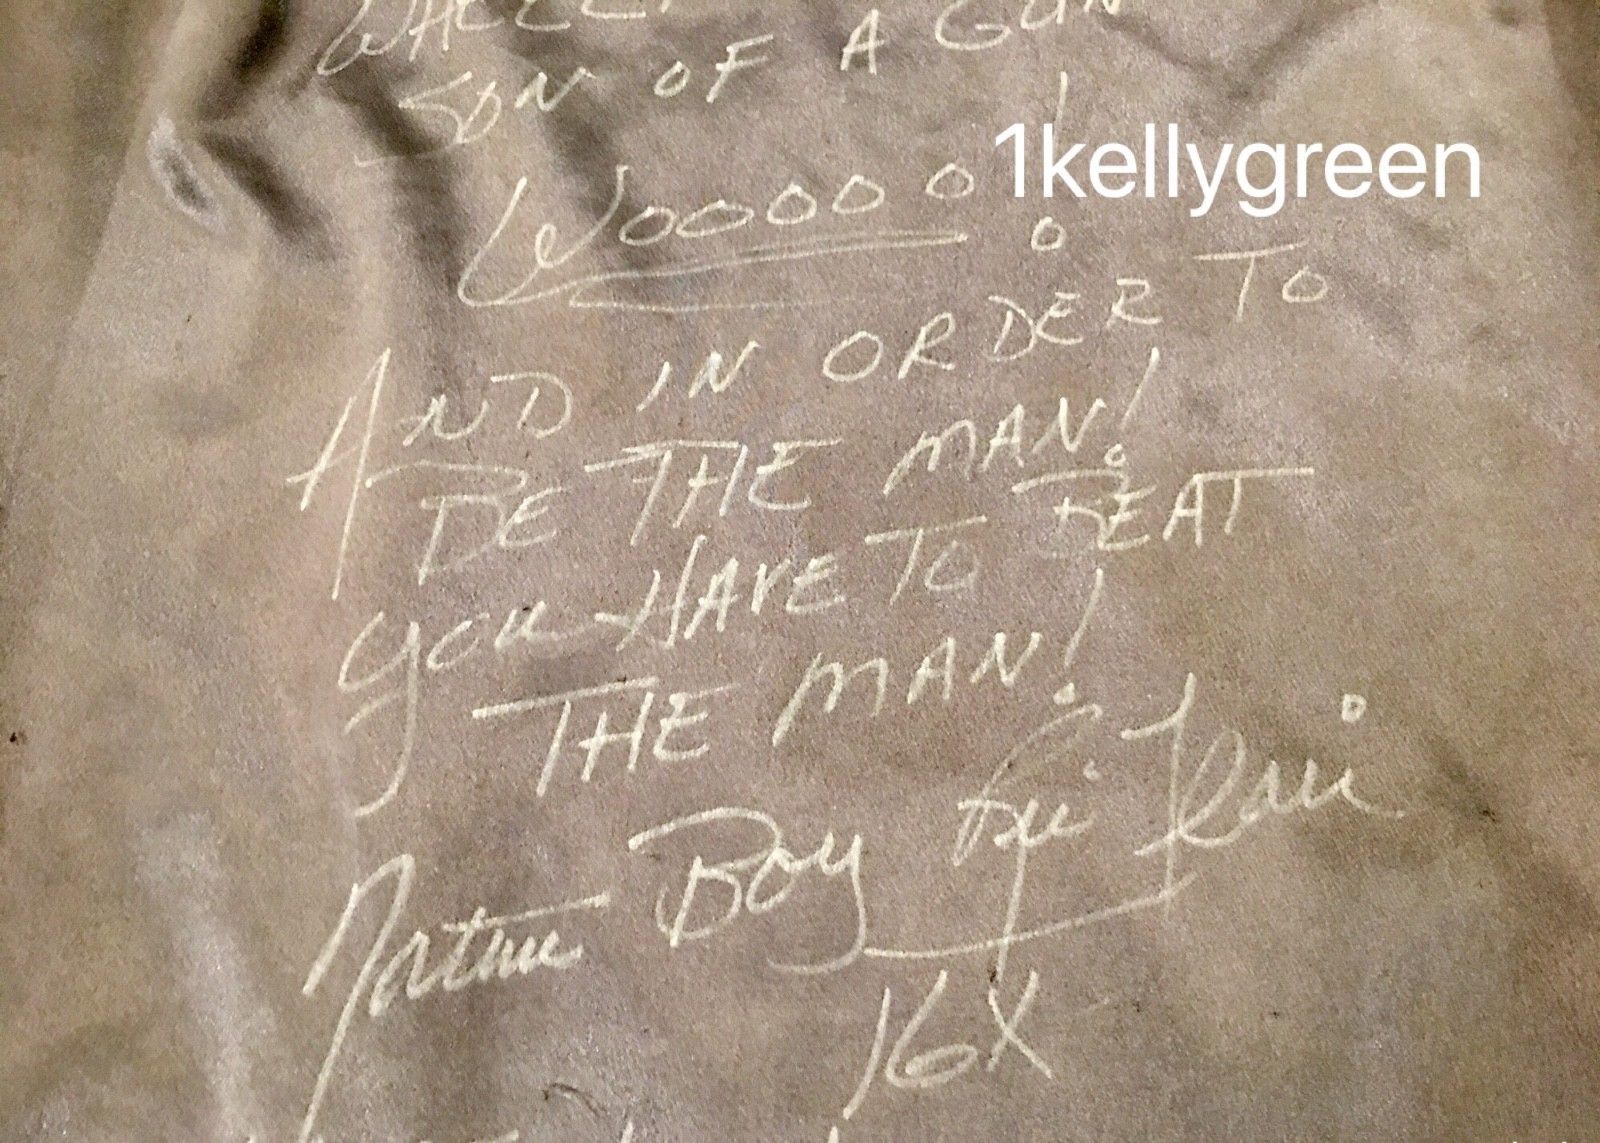 SON OF A GUN
Wooooo!
1kellygreen
AND IN ORDER TO
BE THE MAN!
you HAVE TO BEAT
THE MAN!
Nature Boy Ric Flair
16X